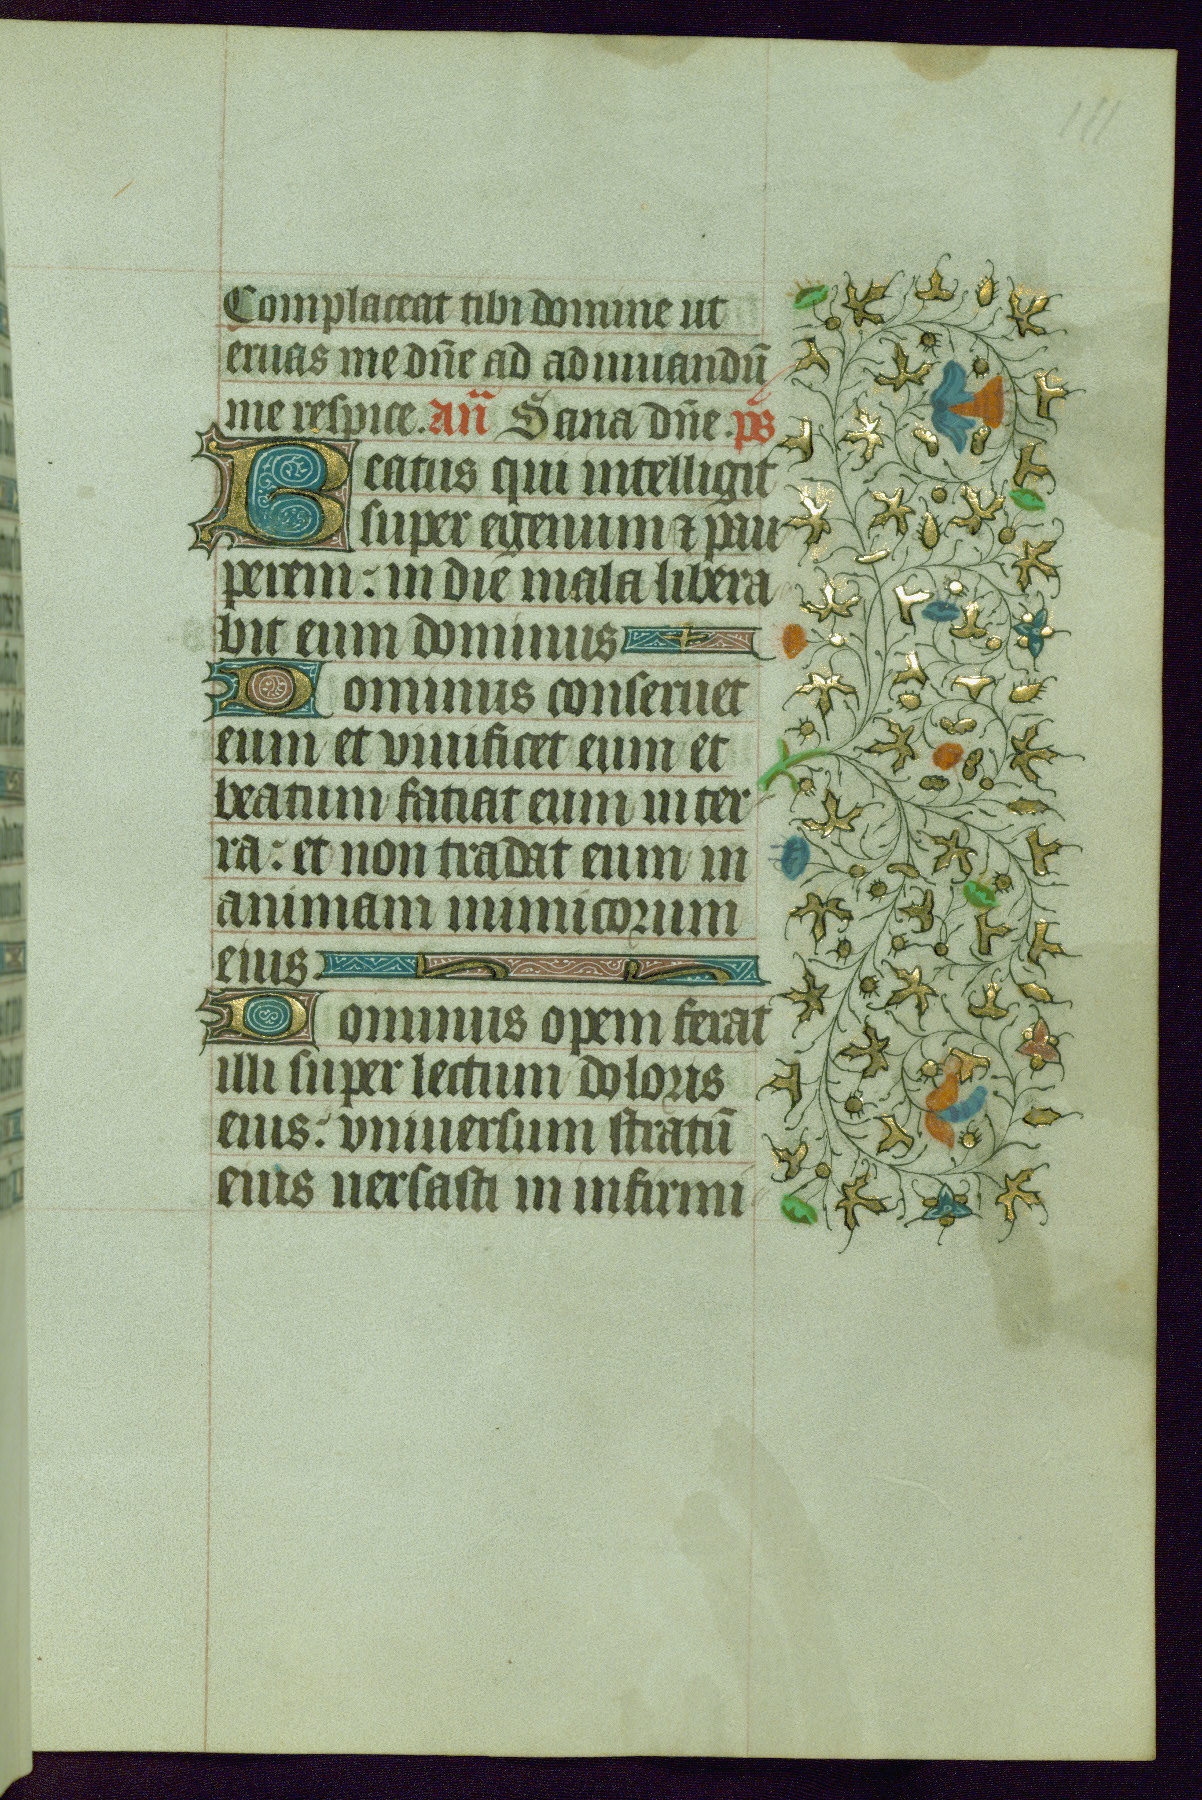 111
Complaceat tibi domine ut
eruas me dn̄e ad adiuuandū
me respice. an̄ Sana dn̄e. ps
Beatus qui intelligit
super egenum ⁊ pau
perem : in die mala libera
bit eum dominus
Dominus conseruet
eum et viuificet eum et
beatum faciat eum in ter
ra : et non tradat eum in
animam inimicorum
eius.
Dominus opem ferat
illi super lectum doloris
eius : vniuersum stratū
eius uersasti in infirmi